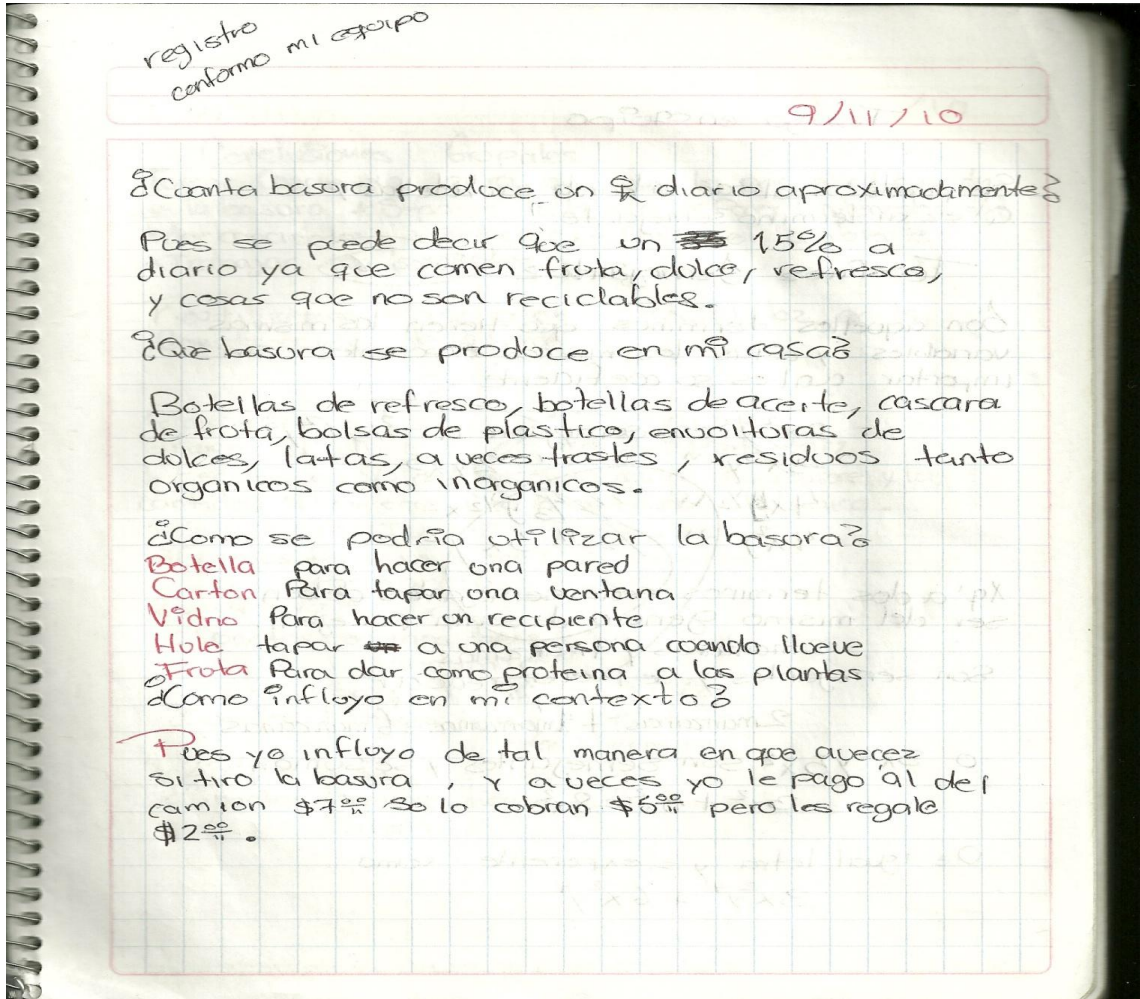 registro
conformo mi equipo
9/11/10
¿Cuanta basura produce un diario aproximadamente?
Pues se puede decir que un 15% a
diario ya que comen fruta, dulce, refresco,
y cosas que no son reciclables.
¿Que basura se produce en mi casa?
Botellas de refresco, botellas de aceite, cascara
de fruta, bolsas de plástico, envolturas de
dulces, latas, a veces trastes, residuos tanto
organicos como inorganicos.
¿Como se podria utilizar la basura?
Botella para hacer una pared
Carton Para tapar una ventana
Vidrio Para hacer un recipiente
Hule tapar a una persona cuando llueve
Fruta Para dar como proteina a las plantas
¿Como influyo en mi contexto?
Pues yo influyo de tal manera en que avecez
si tiro la basura, y a veces yo le pago al del
camion $7.00 So lo cobran $5.00 pero les regalo
$2.00.